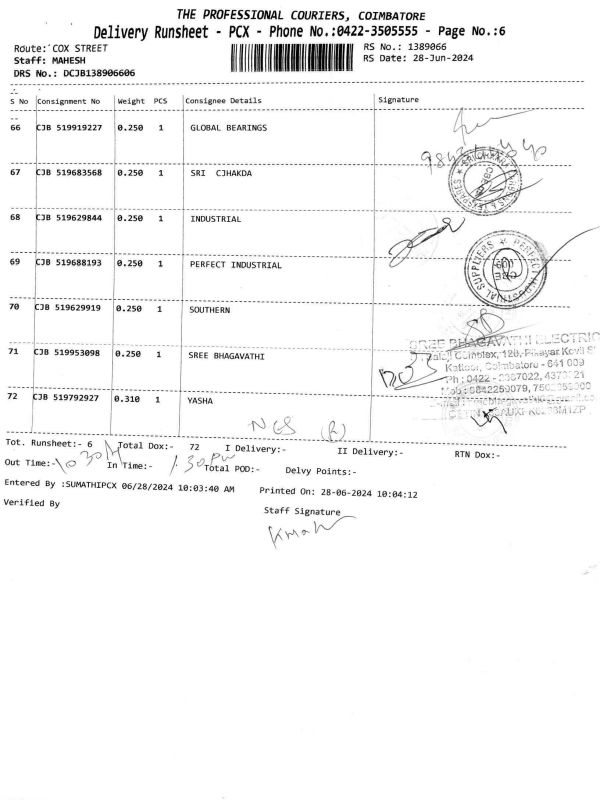 THE PROFESSIONAL COURIERS, COIMBATORE
Delivery Runsheet - PCX - Phone No.:0422-3505555 - Page No.:6
Route: COX STREET
RS No.: 1389066
Staff: MAHESH
RS Date: 28-Jun-2024
DRS No.: DCJB138906606
S No Consignment No Weight PCS Consignee Details Signature
66 CJB 519919227 0.250 1 GLOBAL BEARINGS
67 CJB 519683568 0.250 1 SRI CJHAKDA
68 CJB 519629844 0.250 1 INDUSTRIAL
69 CJB 519688193 0.250 1 PERFECT INDUSTRIAL
PERFECT INDUSTRIAL SUPPLIERS
70 CJB 519629919 0.250 1 SOUTHERN
SREE BHAGAVATHI ELECTRIC
71 CJB 519953098 0.250 1 SREE BHAGAVATHI
Complex, 126, Pillayar Kovil
Kattoor, Coimbatore - 641 009
72 CJB 519792927 0.310 1 YASHA
NCS (R)
Tot. Runsheet:- 6 Total Dox:- 72 I Delivery:- II Delivery:- RTN Dox:-
Out Time:- 10 30 In Time:- 1.30 Pm Total POD:- Delvy Points:-
Entered By :SUMATHIPCX 06/28/2024 10:03:40 AM Printed On: 28-06-2024 10:04:12
Verified By
Staff Signature